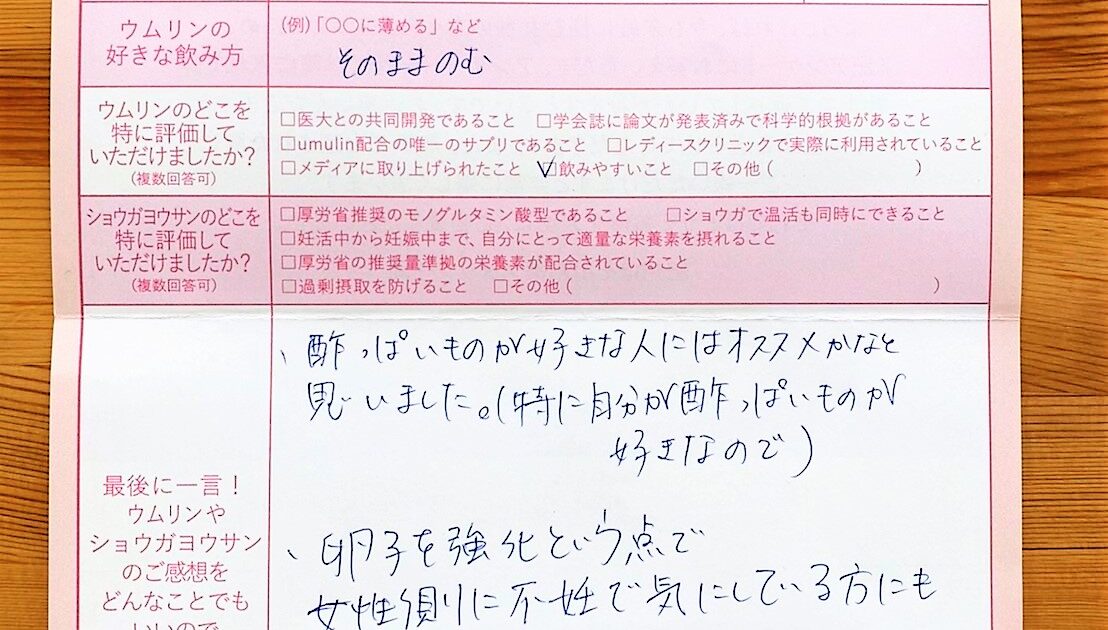 ウムリンの
好きな飲み方
(例)「〇〇に薄める」など
そのままのむ
ウムリンのどこを
特に評価して
いただけましたか?
(複数回答可)
□医大との共同開発であること □学会誌に論文が発表済みで科学的根拠があること
□umulin配合の唯一のサプリであること □レディースクリニックで実際に利用されていること
□メディアに取り上げられたこと ☑飲みやすいこと □その他( )
ショウガヨウサンのどこを
特に評価して
いただけましたか?
(複数回答可)
□厚労省推奨のモノグルタミン酸型であること □ショウガで温活も同時にできること
□妊活中から妊娠中まで、自分にとって適量な栄養素を摂れること
□厚労省の推奨量準拠の栄養素が配合されていること
□過剰摂取を防げること □その他( )
最後に一言!
ウムリンや
ショウガヨウサン
のご感想を
どんなことでも
いいので
、酢っぱいものが好きな人にはオススメかなと
思いました。(特に自分が酢っぱいものが
好きなので)
、卵子を強化という点で
女性側に不妊で気にしている方にも